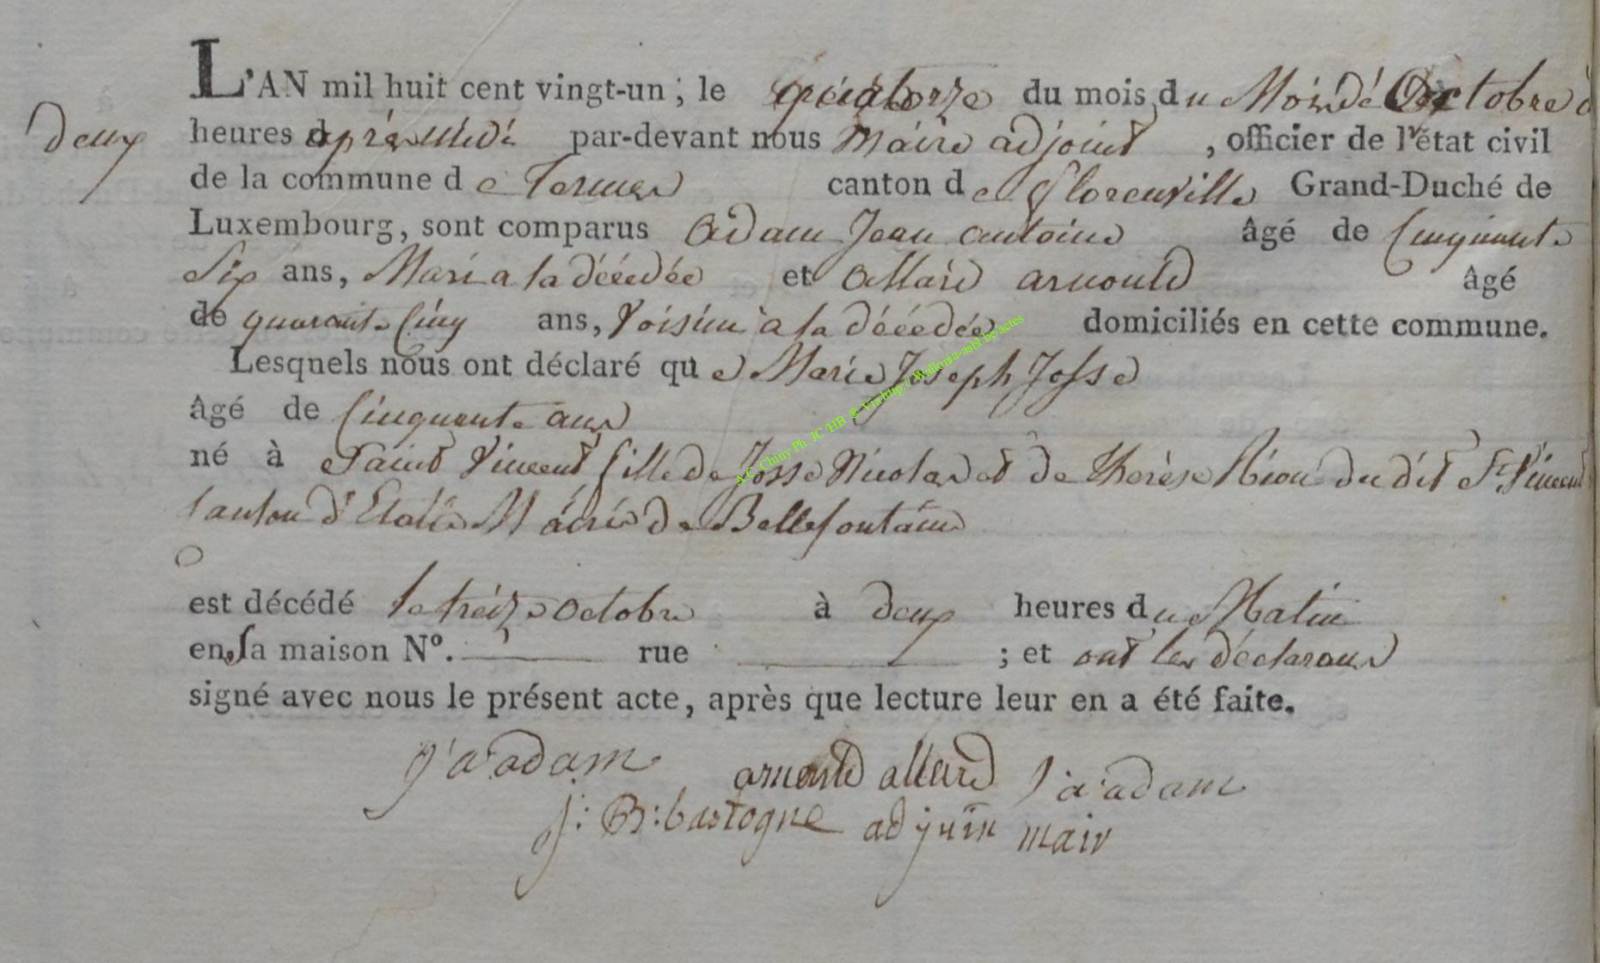 L'AN mil huit cent vingt-un ; le quatorze du mois du Mois dé Octobre à
deux heures après midi par-devant nous Maire adjoint , officier de l'état civil
de la commune de Termes canton de Florenville Grand-Duché de
Luxembourg, sont comparus Adam Jean antoine âgé de Cinquante
Six ans, Mari a la décédée et Allard arnould âgé
de quarante Cinq ans, Voisin a la décédée domiciliés en cette commune.
Lesquels nous ont déclaré que Marie Joseph Josse
âgé de Cinquante ans
né à Saint Vincent fille de Josse Nicolas et de Thérèse du dit St. Vincent
Canton d'Etalle Mairie de Bellefontaine
est décédé le treize octobre à deux heures du Matin
en sa maison N°. rue ; et ont les déclarans
signé avec nous le présent acte, après que lecture leur en a été faite.
j a adam arnould allard j a adam
j: B: bastogne adjuin mair